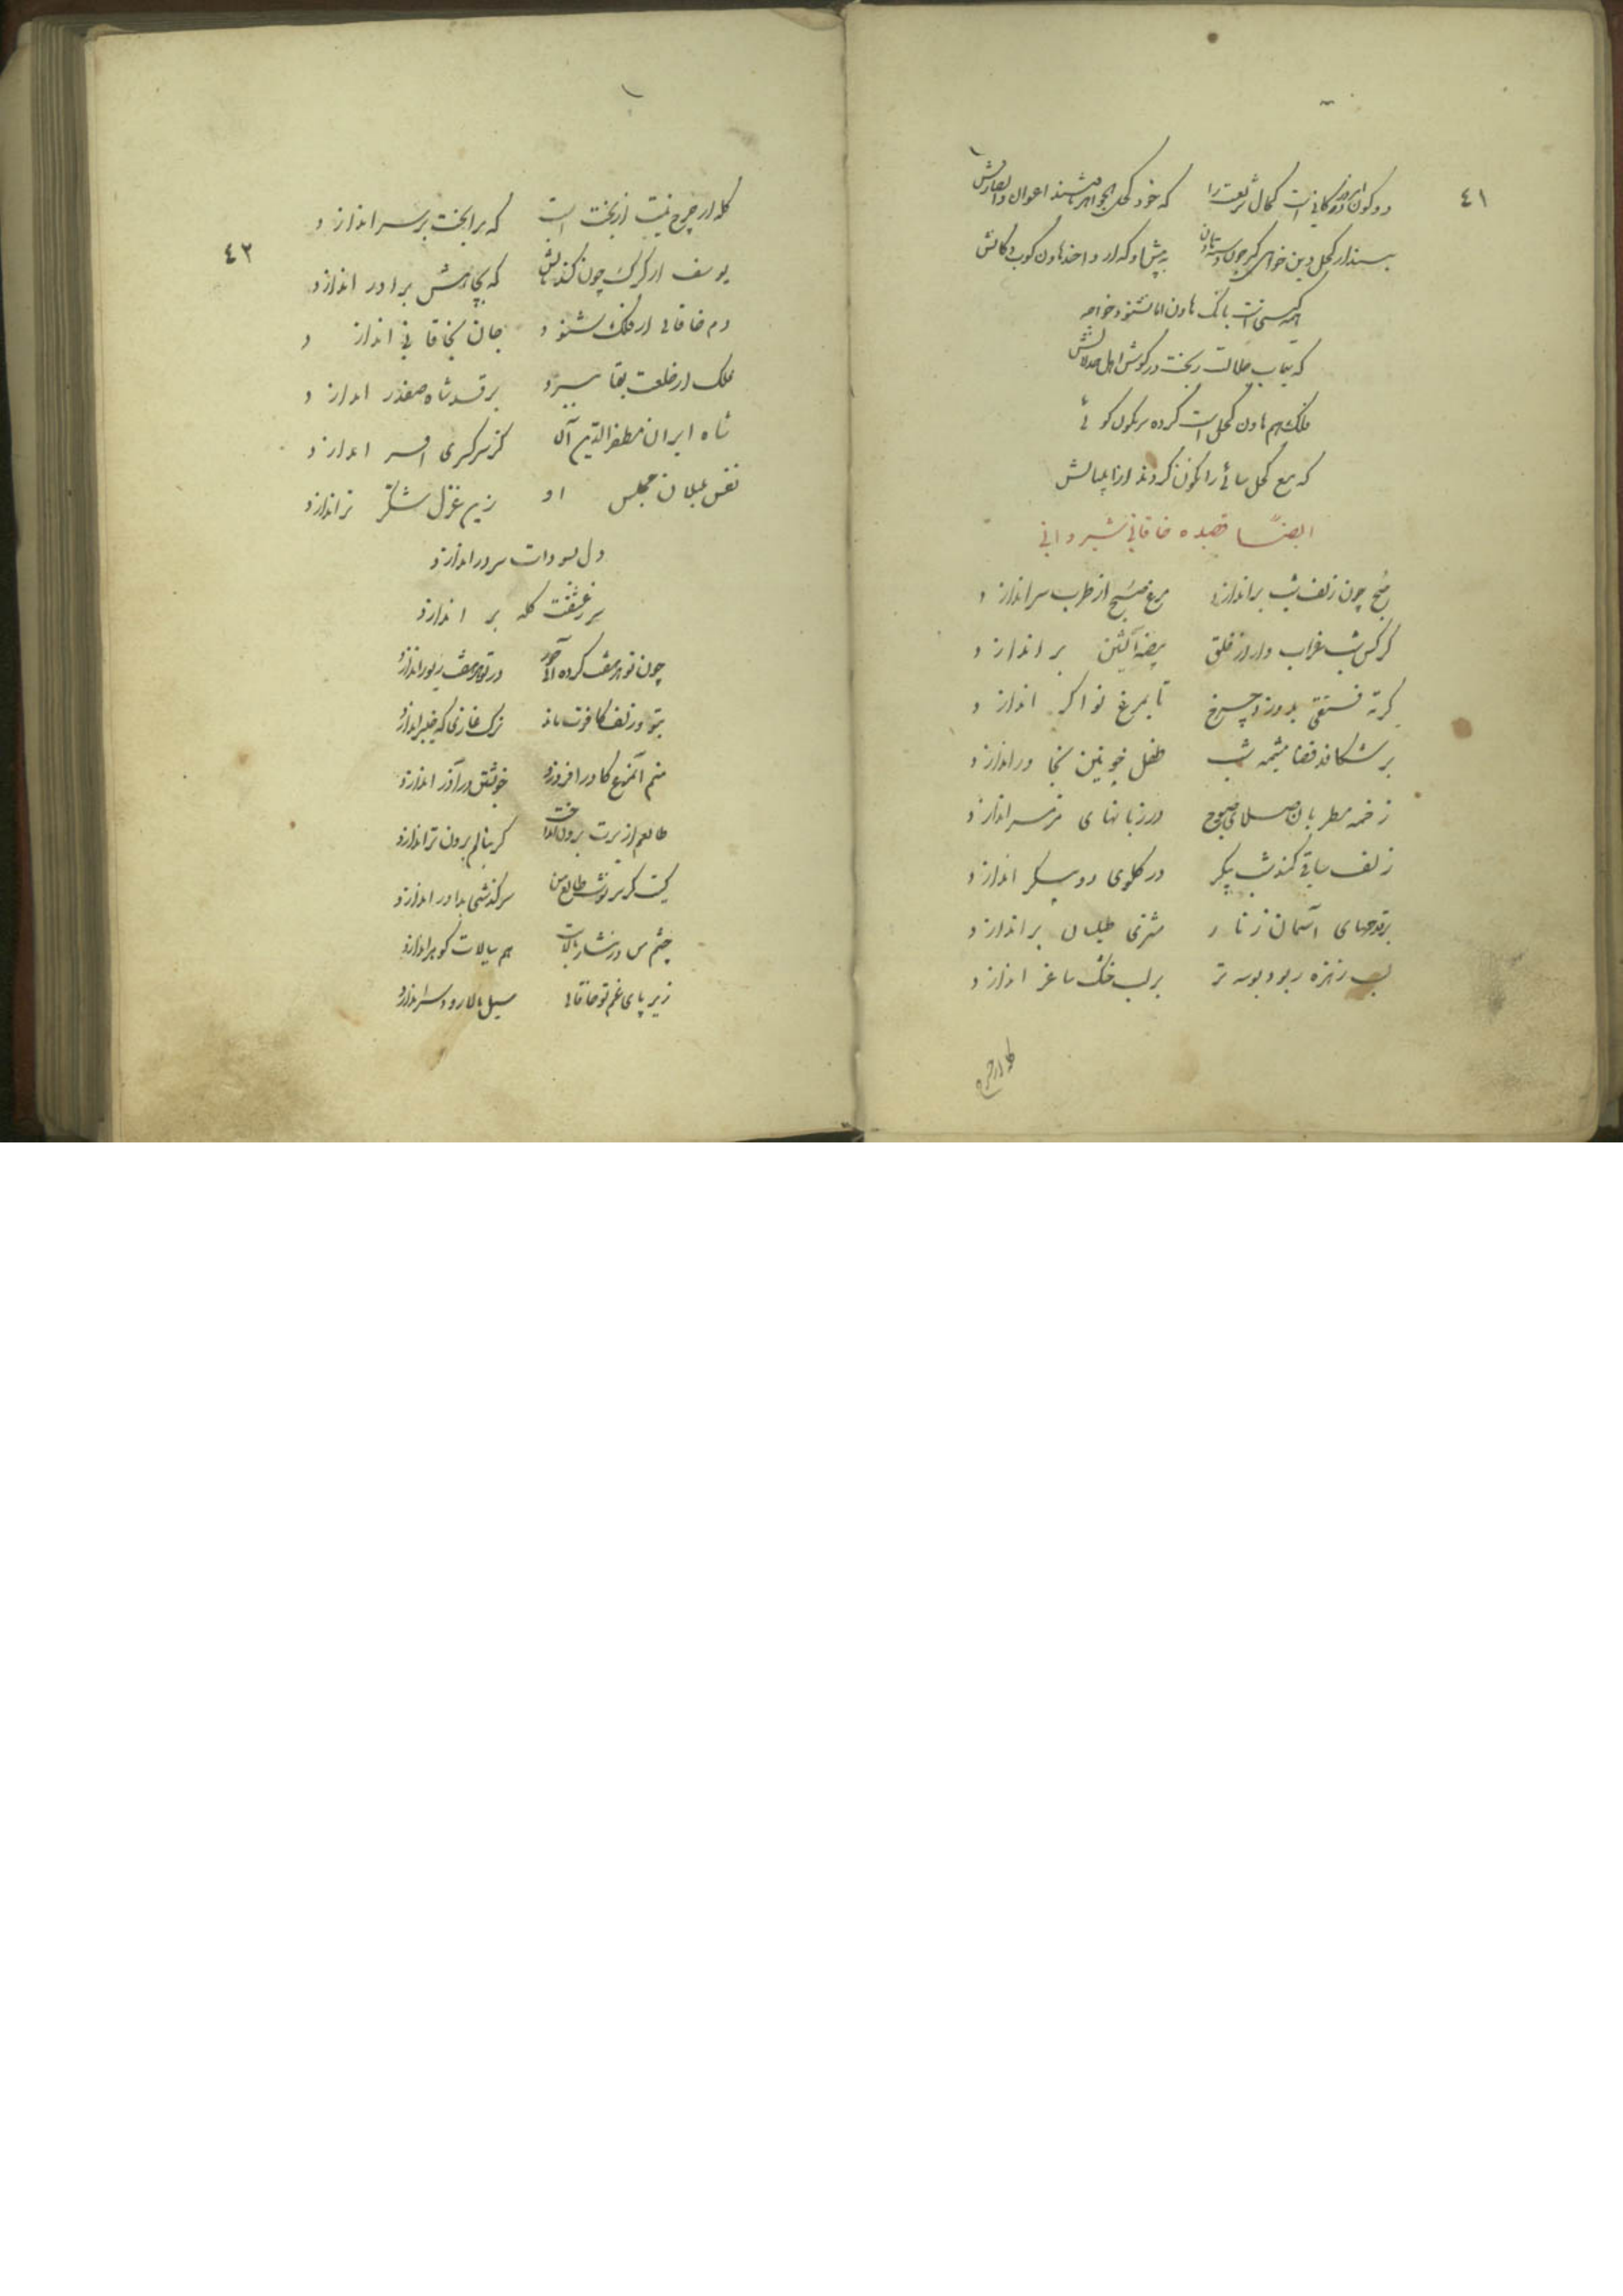 ٤١
دو کون امروز دکانیست کحال شریعت را که خود کحل الجواهر شد اعوان و انصارش
بپیش او
همه گیتیست بانگ هاون اما نشنود خواجه
که سیماب ضلالت ریخت در گوش اهل خذلانش
فلک هم هاون کحلیست کرده سرنگون گوئی
که منع کحل سائی را نگون کردند ازینسانش
ایضاً قصیده خاقانی شیروانی
صبح چون زلف شب براندازد مرغ صبح از طرب سراندازد
کرکس شب غراب وار از حلق بیضه آتشین براندازد
کرته فستقی بدرد چرخ تا بمرغ نواگر اندازد
برشکافد قضا مشیمه شب طفل خونین بخاور اندازد
زخمه مطربان صلای صبوح در زبانهای مزمر اندازد
زلف ساقی کمند شب پیکر در گلوی دو پیکر اندازد
بر قدحهای آسمان زنار مشتری طیلسان براندازد
لب زهره ربود بوسه تر بر لب خشک ساغر اندازد
گله از چرخ
٤٢
گله از چرخ نیست از بختست که مرا بخت بر سر اندازد
یوسف از گرگ چون کند نالش که بچاهش برادر اندازد
دم خاقانی ار فلک شنود جان بخاقانی اندازد
فلک ار خلعت بقا ببرد بر قد شاه صفدر اندازد
شاه ایران مظفر الدین آن کز سر کسری افسر اندازد
نفس بلبلان مجلس او زین غزل شکر تر اندازد
دل بسودات سر در اندازد
سر ز عشقت کله براندازد
چون تو هر هفت کرده آئی حور در تو هر هفت زیور اندازد
بتو و زلف کافرت ماند ترک غازی که چنبر اندازد
منم آن مرغ کآذر افروزد خویشتن در آذر اندازد
طالعم از برت برون انداخت گر بنالم برون تر اندازد
کیست کز سرنوشت طالع من سرگذشتی بداور اندازد
چشم من در نثار بالایت هم ببالات گوهر اندازد
زیر پای غم تو خاقانی سیل بالا رود سر اندازد